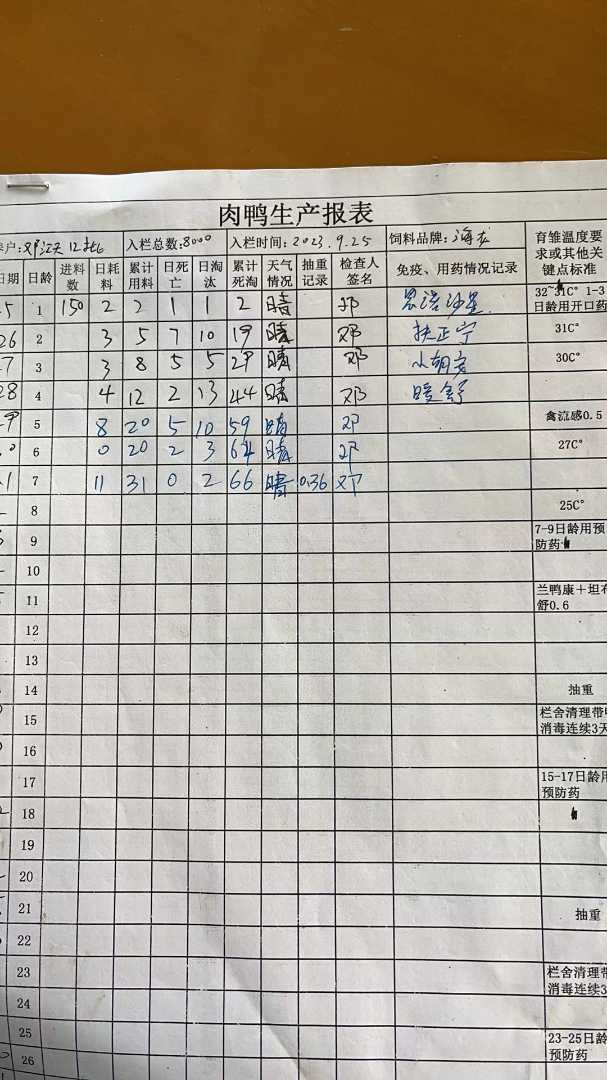 肉鸭生产报表
户:邓江天 12批 入栏总数:8000 入栏时间:2023.9.25 饲料品牌:海大
日期 日龄 进料数 日耗料 累计用料 日死亡 日淘汰 累计死淘 天气情况 抽重记录 检查人签名 免疫、用药情况记录 育雏温度要求或其他关键点标准
5 1 150 2 2 1 1 2 晴 邓 恩诺沙星 32~31C° 1-3日龄用开口药
26 2 3 5 7 10 19 晴 邓 扶正宁 31C°
7 3 3 8 5 5 29 晴 邓 30C°
28 4 4 12 2 13 44 晴 邓 暖舒
9 5 8 20 5 10 59 晴 邓 禽流感0.5
0 6 0 20 2 3 64 晴 邓 27C°
1 7 11 31 0 2 66 晴 0.36 邓
8 25C°
9 7-9日龄用预防药
10
11 兰鸭康+坦布舒0.6
12
13
14 抽重
15 栏舍清理带
消毒连续3天
16
17 15-17日龄用
预防药
18
19
20
21 抽重
22
23 栏舍清理带
消毒连续3
24
25 23-25日龄
预防药
26